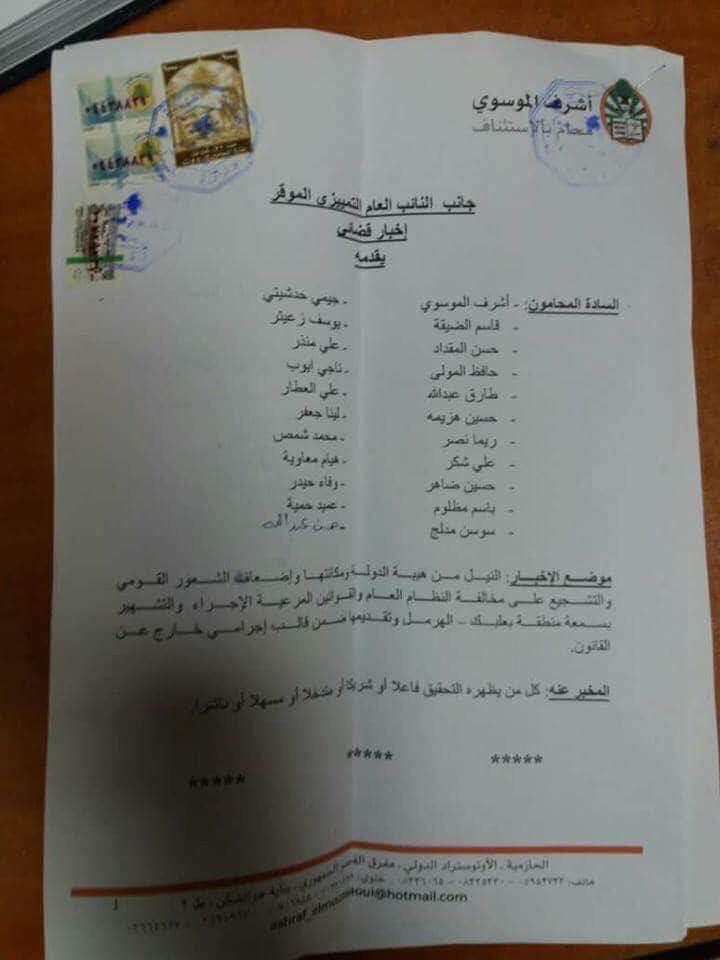 أشرف الموسوي
محام بالاستئناف
جانب النائب العام التمييزي الموقر
إخبار قضائي
يقدمه
السادة المحامون: - أشرف الموسوي
- قاسم الضيقة
- حسن المقداد
- حافظ المولى
- طارق عبدالله
- حسين هزيمه
- ريما نصر
- علي شكر
- حسين ضاهر
- باسم مظلوم
- سوسن مدلج
- جيمي حدشيتي
- يوسف زعيتر
- علي منذر
- ناجي ايوب
- علي العطار
- لينا جعفر
- محمد شمص
- هيام معاوية
- وفاء حيدر
- عميد حمية
موضع الإخبار: النيل من هيبة الدولة ومكانتها وإضعاف الشعور القومي
والتشجيع على مخالفة النظام العام والقوانين المرعية الإجراء والتشهير
بسمعة منطقة بعلبك – الهرمل وتقديمها ضمن قالب إجرامي خارج عن
القانون.
المخبر عنه: كل من يظهره التحقيق فاعلا أو شريكا أو متدخلا أو مسهلا أو ناشرا.
*****
*****
*****
الحازمية - الأوتوستراد الدولي - مفرق القصر الجمهوري - بناية
هاتف:
hotmail.com@